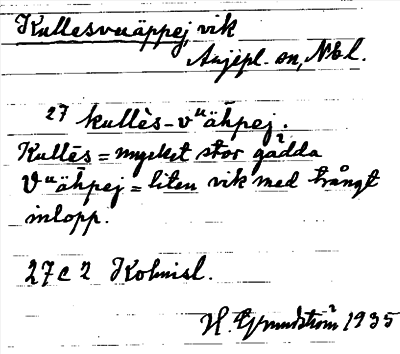 Kullesvuäppej, vik
Arjepl. sn, Nbl.
27 kullēs-vᵘähpej.
Kullēs = mycket stor gädda
Vᵘähpej = liten vik med trångt
inlopp.
27 c 2 Kolmisl.
H. Grundström 1935